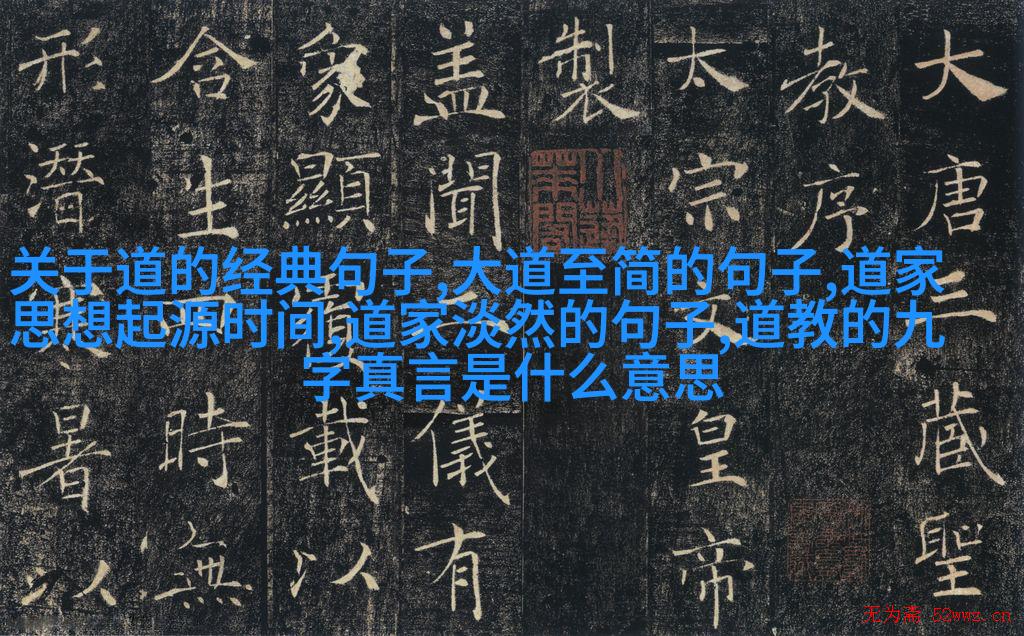 大唐三藏聖
教序
太宗文皇帝
製
盖聞二儀有
象顯覆載以
含生四時無
形潛寒暑以
关于道的经典句子,大道至简的句子,道家
思想起源时间,道家淡然的句子,道教的九
字真言是什么意思
无为斋 52wwz.cn